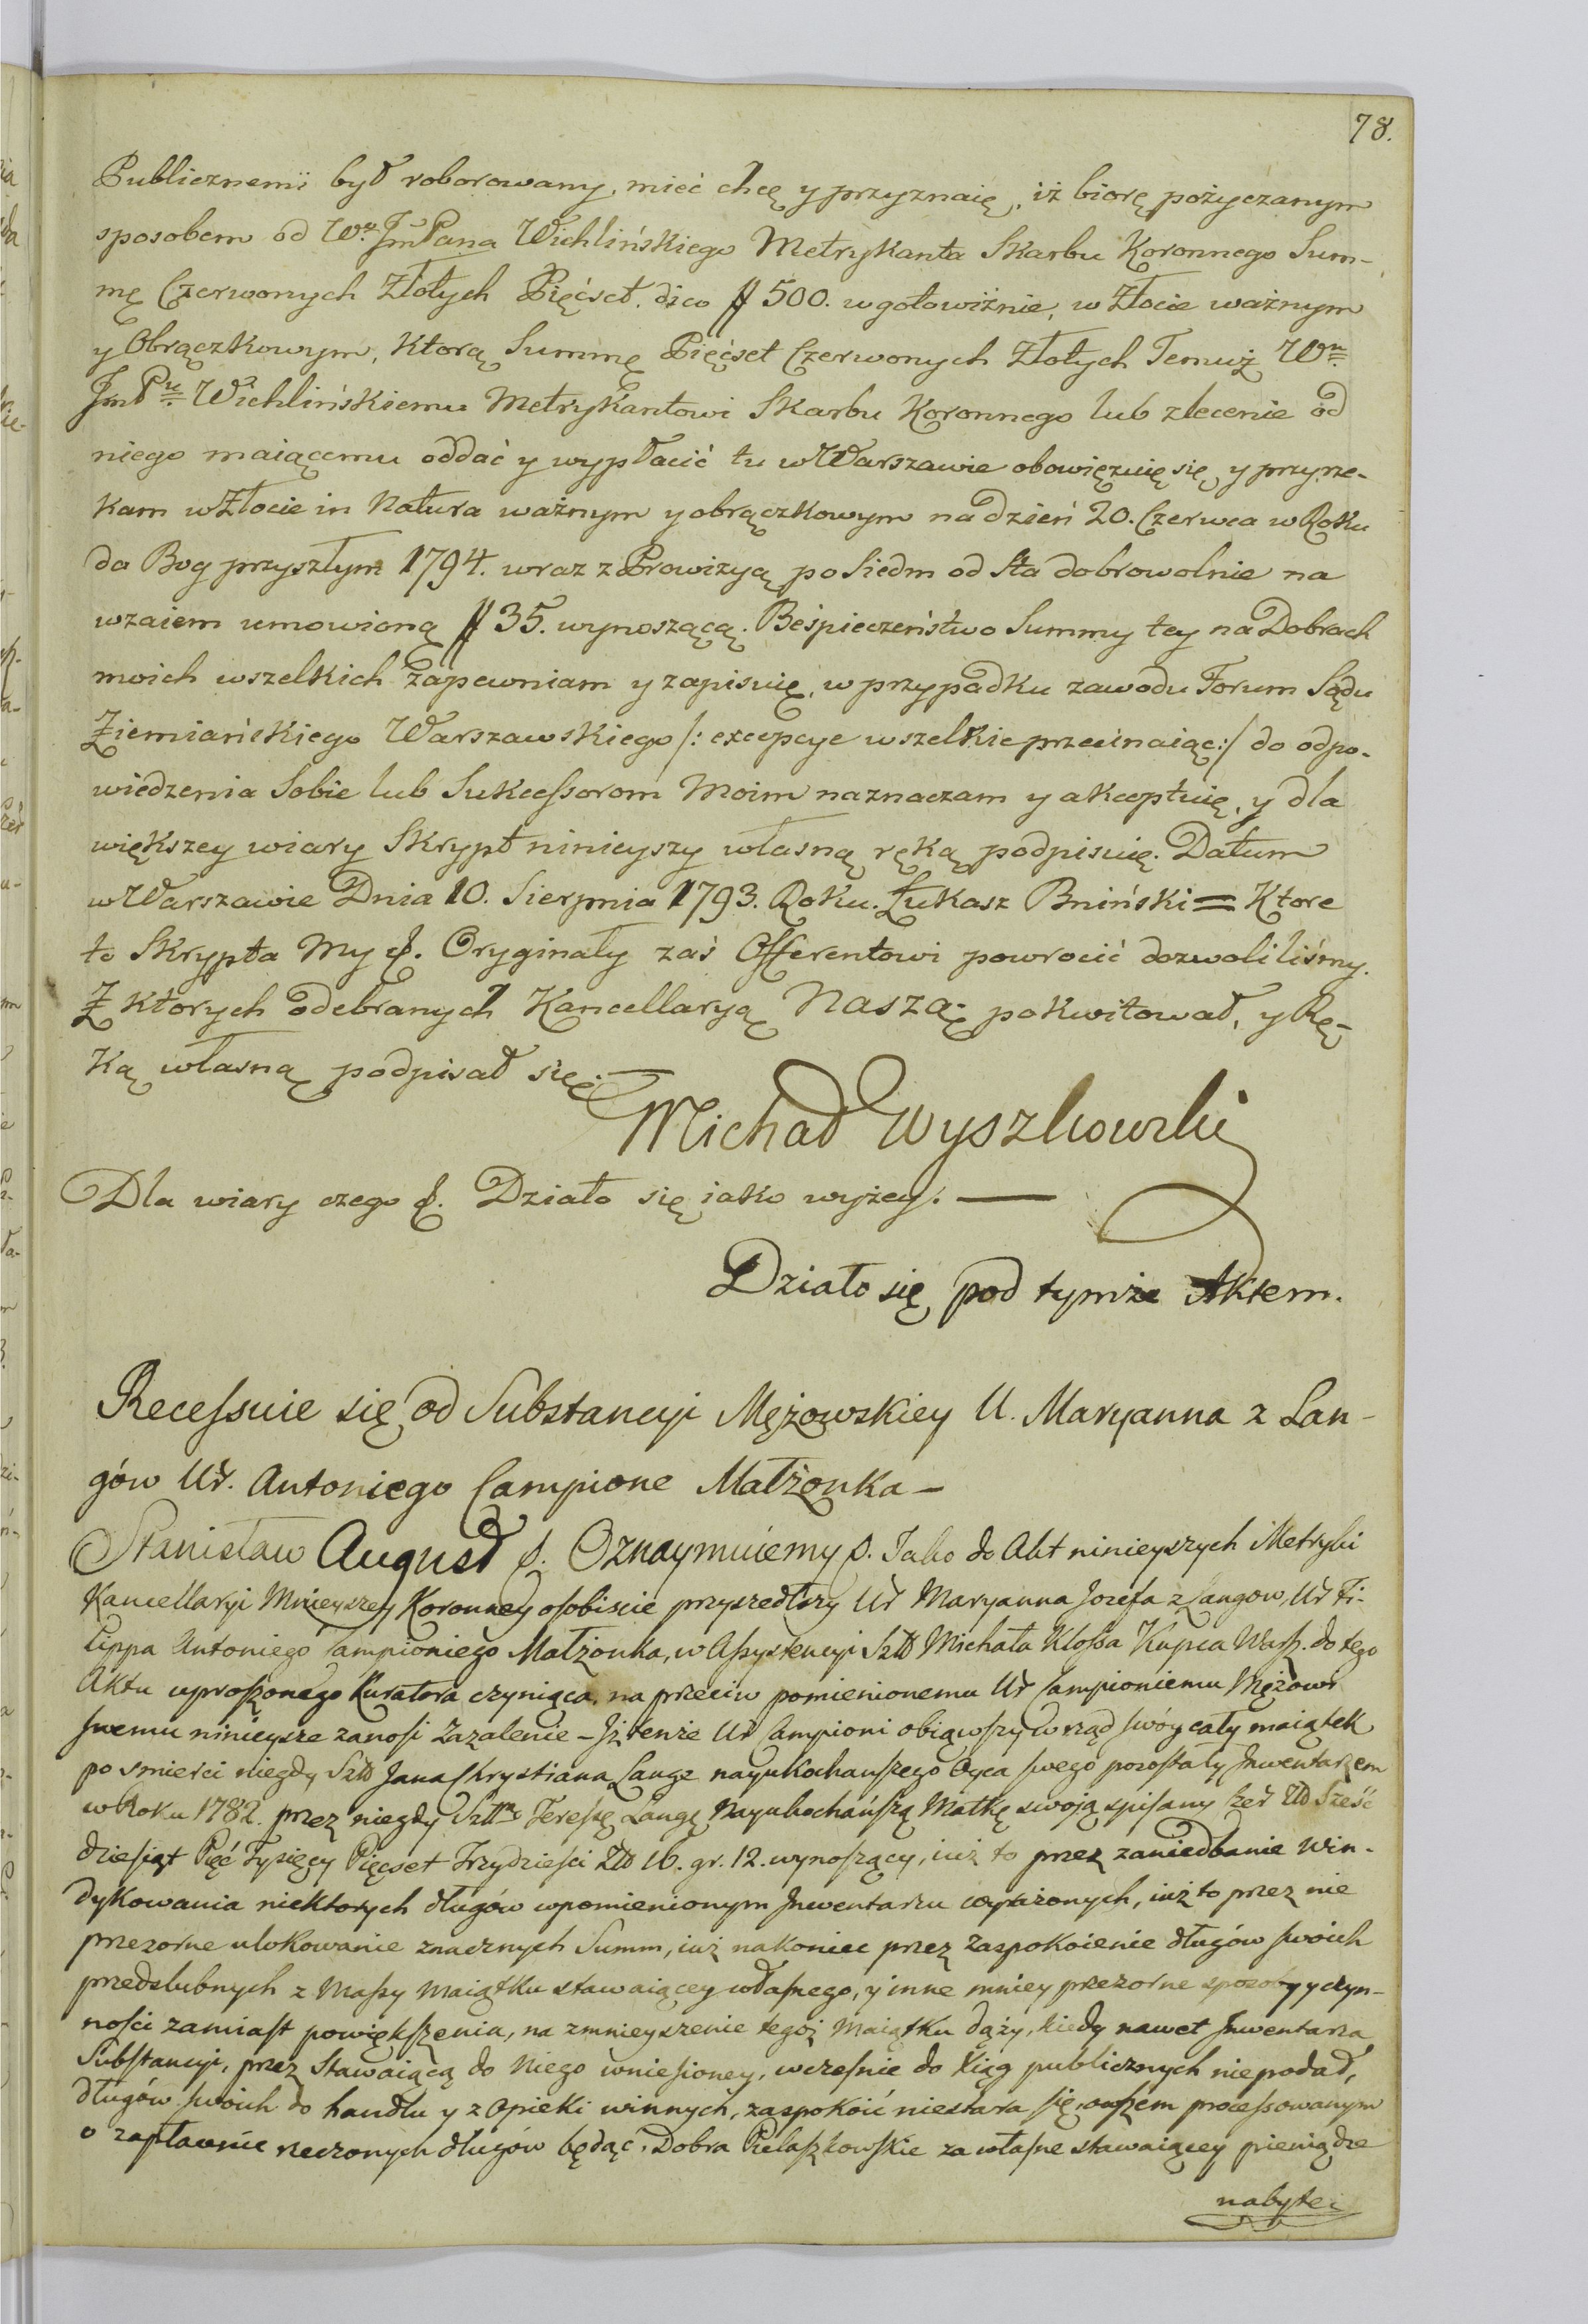 78.
Publicznemi był roborowany, mieć chcę y przyznaię, iż biorę pożyczanym
sposobem od Wº JmPana Wichlińskiego Metrykanta Skarbu Koronnego Sum-
mę Czerwonych Złotych Pięćset dico # 500. w gotowiźnie, w Złocie ważnym
y Obrączkowym, Ktorą Summę Pięćset Czerwonych Złotych Temuż Wu
JmPu Wichlińskiemu Metrykantowi Skarbu Koronnego lub zlecenie od
niego maiącemu oddać y wypłacić tu w Warszawie obowięzuię się, y przyrze-
kam w Złocie in Natura ważnym y obrączkowym na dzień 20. Czerwca w Roku
da Bog przyszłym 1794. wraz z Prowizyą po Siedm od Sta dobrowolnie na
wzaiem umowioną # 35. wynoszącą. Beśpieczeństwo Summy tey na Dobrach
moich wszelkich zapewniam y zapisuię, w przypadku zawodu Forum Sądu
Ziemiańskiego Warszawskiego /: excepcye wszelkie przecinaiąc :/ do odpo-
wiedzenia Sobie lub Sukcessorom Moim naznaczam y akceptuię, y dla
większey wiary Skrypt ninieyszy własną ręką podpisuię. Datum
w Warszawie Dnia 10. Sierpnia 1793. Roku. Łukasz Bniński = Ktore
to Skrypta My &. Oryginały zaś Offerentowi powrocić dozwoliliśmy.
Z ktorych odebranych Kancellaryą Naszą pokwitował, y Rę-
ką własną podpisał się. —
Michał Wyszkowski
Dla wiary czego &. Działo się iako wyżey. —
Działo się pod tymże Aktem.
Recessuie się od Substancyi Mężowskiey U. Maryanna z Lan-
gów Ur. Antoniego Campione Małżonka —
Stanisław August &. Oznaymuiemy &. Iako do Akt ninieyszych Metryki
Kancellaryi Mnieyszey Koronney osobiscie przyszedłszy Ur Maryanna Jozefa z Langow, Ur Fi-
lippa Antoniego Campioniego Małżonka, w Assystencyi Szld Michała Klossa Kupca Warsz. do tego
Aktu uproszonego Kuratora czyniąca, na przeciw pomienionemu Ur Campioniemu Mężowi
swemu ninieysze zanosi Zażalenie — Jż tenże Ur Campioni obiąwszy w rząd swóy cały maiątek
po smierci niegdy Szld Jana Chrystiana Lange nayukochanszego Oyca swego pozostały Jnwentarzem
w Roku 1782. przez niegdy Szld Teresę Langę Nayukochańszą Matkę swoią spisany Czer Zld Sześć
dziesiąt Pięć Tysięcy Pięcset Trzydzieści Zld 16. gr. 12. wynoszący, iuż to przez zaniedbanie win-
dykowania niektorych długów w pomienionym Jnwentarzu wyrażonych, iuż to przez nie
przezorne ulokowanie znacznych Summ, iuż nakoniec przez zaspokoienie długów swoich
przedslubnych z Massy Maiątku stawaiącey własnego, y inne mniey przezorne sposoby y czyn-
ności zamiast powiększenia, na zmnieyszenie tegoż Maiątku dąży, kiedy nawet Jnwentarza
Substancyi, przez Stawaiącą do Niego wniesioney, wcześnie do Xiąg publicznych niepodał,
długów swoich do handlu y z Opieki winnych, zaspokoić niestara się, owszem processowanym
o zapłacenie rzeczonych długów będąc, Dobra Pielaszkowskie za własne stawaiącey pieniądze
nabyte